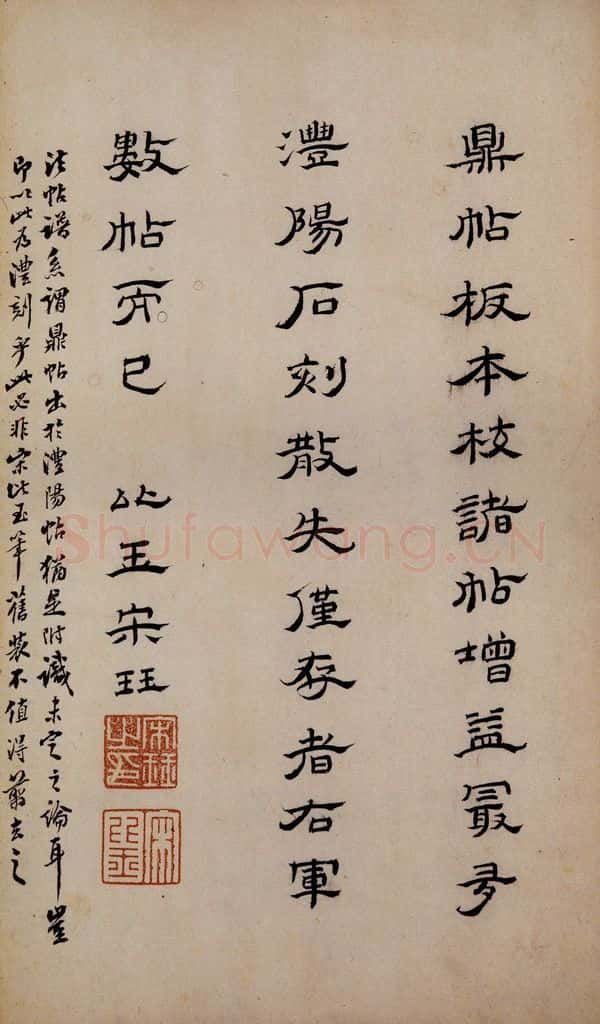 鼎帖板本枝諸帖增益冣多
澧陽石刻散失僅存者右軍
數帖而已 比玉宋珏
法帖譜系謂鼎帖出於澧陽帖猶是附識未定之論耳豈
即以此為澧刻乎此必非宋比玉筆舊裝不值得翦去之
Shufawang.CN